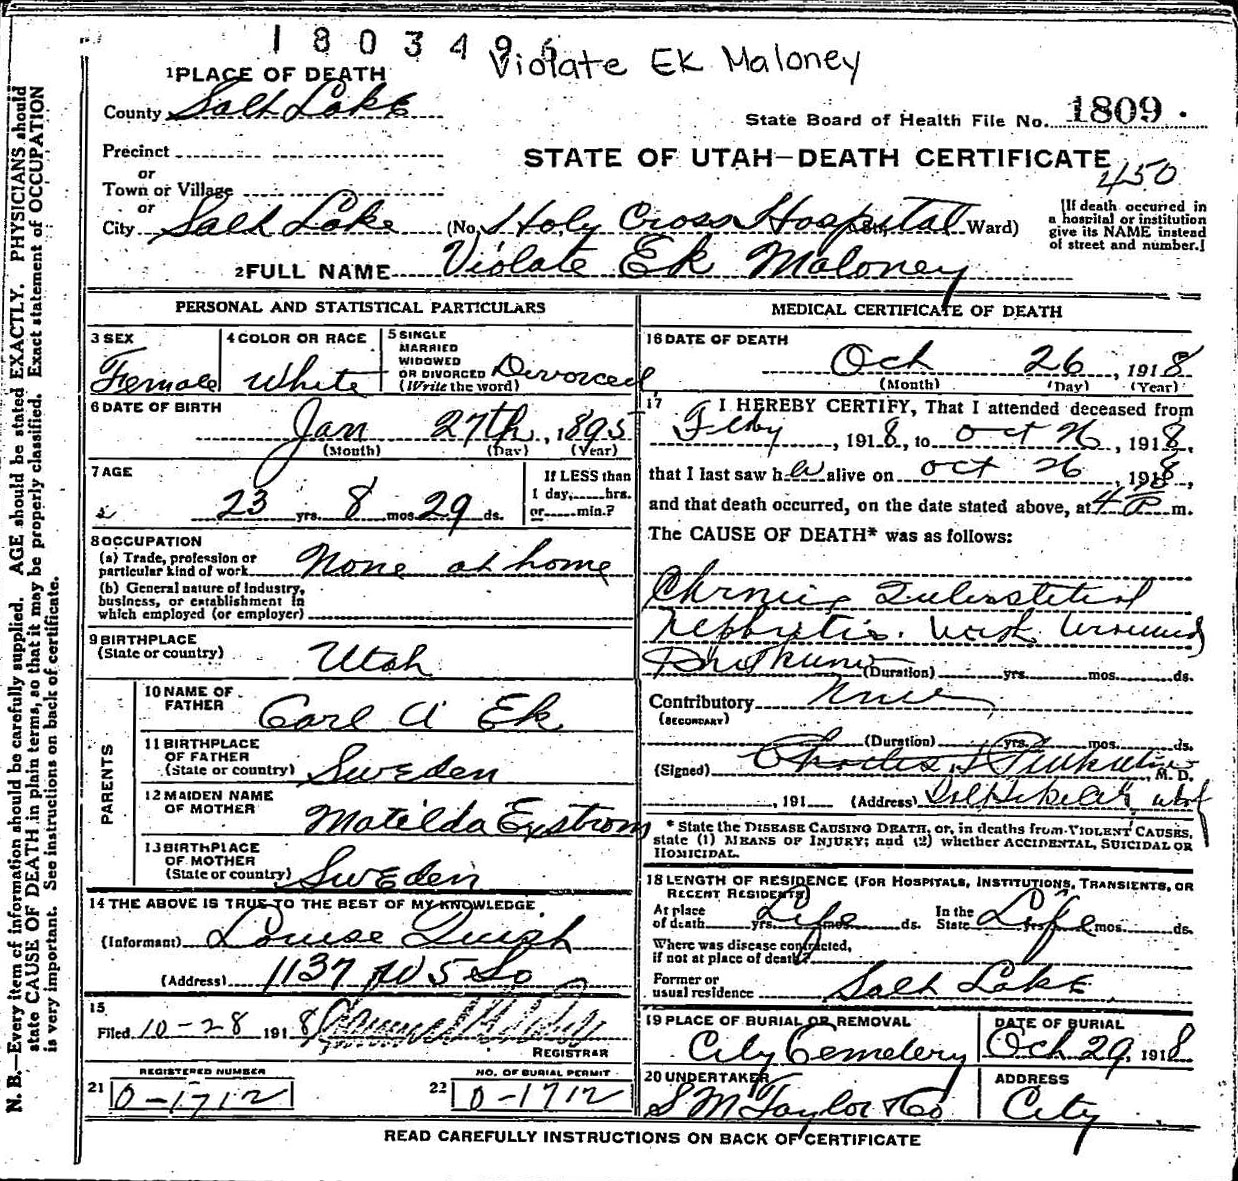 1803496
Violate Ek Maloney
1 PLACE OF DEATH
County Salt Lake
State Board of Health File No. 1809.
Precinct
STATE OF UTAH—DEATH CERTIFICATE
or
Town or Village
450
or
City Salt Lake (No. Holy Cross Hospital St. Ward)
[If death occurred in
a hospital or institution
give its NAME instead
of street and number.]
2 FULL NAME Violate Ek Maloney
PERSONAL AND STATISTICAL PARTICULARS
3 SEX
Female
4 COLOR OR RACE
White
5 SINGLE
MARRIED
WIDOWED
OR DIVORCED Divorced
(Write the word)
6 DATE OF BIRTH
Jan 27th, 1895
(Month) (Day) (Year)
7 AGE
23 yrs. 8 mos. 29 ds.
If LESS than
1 day, hrs.
or min.?
8 OCCUPATION
(a) Trade, profession or
particular kind of work None at home
(b) General nature of industry,
business, or establishment in
which employed (or employer)
9 BIRTHPLACE
(State or country) Utah
PARENTS
10 NAME OF
FATHER Carl A Ek
11 BIRTHPLACE
OF FATHER
(State or country) Sweden
12 MAIDEN NAME
OF MOTHER Matilda
13 BIRTHPLACE
OF MOTHER
(State or country) Sweden
14 THE ABOVE IS TRUE TO THE BEST OF MY KNOWLEDGE
(Informant) Louise
(Address) 1137 W 5 So
15
Filed 10-28 1918
REGISTRAR
REGISTERED NUMBER
21 0-1712
NO. OF BURIAL PERMIT
22 0-1712
MEDICAL CERTIFICATE OF DEATH
16 DATE OF DEATH
Oct 26, 1918
(Month) (Day) (Year)
17 I HEREBY CERTIFY, That I attended deceased from
Feby, 1918, to Oct 26, 1918,
that I last saw her alive on Oct 26, 1918,
and that death occurred, on the date stated above, at 4 P m.
The CAUSE OF DEATH* was as follows:
Chronic Interstitial
Nephritis. with
(Duration) yrs. mos. ds.
Contributory None
(SECONDARY)
(Duration) yrs. mos. ds.
(Signed) Charles M. D.
, 191 (Address)
* State the DISEASE CAUSING DEATH, or, in deaths from VIOLENT CAUSES,
state (1) MEANS OF INJURY; and (2) whether ACCIDENTAL, SUICIDAL OR
HOMICIDAL.
18 LENGTH OF RESIDENCE (FOR HOSPITALS, INSTITUTIONS, TRANSIENTS, OR
RECENT RESIDENTS)
At place
of death Life yrs. ds.
In the
State Life yrs. mos. ds.
Where was disease contracted,
if not at place of death?
Former or
usual residence Salt Lake
19 PLACE OF BURIAL OR REMOVAL
City Cemetery
DATE OF BURIAL
Oct 29, 1918
20 UNDERTAKER
S M Taylor & Co
ADDRESS
City
READ CAREFULLY INSTRUCTIONS ON BACK OF CERTIFICATE
N. B.—Every item of information should be carefully supplied. AGE should be stated EXACTLY. PHYSICIANS should
state CAUSE OF DEATH in plain terms, so that it may be properly classified. Exact statement of OCCUPATION
is very important. See instructions on back of certificate.